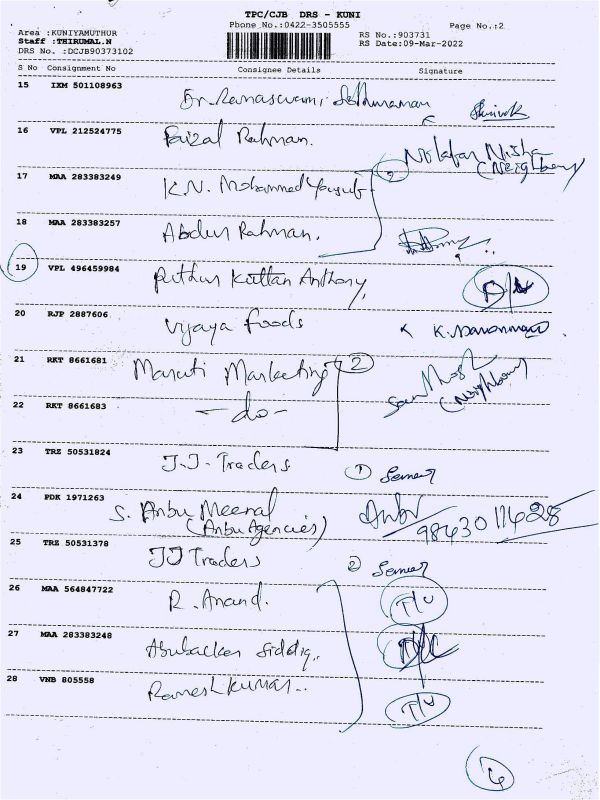 TPC/CJB DRS - KUNI
Phone No.:0422-3505555 Page No.:2
Area :KUNIYAMUTHUR RS No.:903731
Staff :THIRUMAL.N RS Date:09-Mar-2022
DRS No. :DCJB90373102
S No Consignment No Consignee Details Signature
15 IXM 501108963 Dr. Ramaswami Sethuraman
16 VPL 212524775 Faizal Rahman. Nilafar Nisha
(Neighbour)
17 MAA 283383249 K.N. Mohammed Yousuf 2
18 MAA 283383257 Abdur Rahman.
19 VPL 496459984 Puthur Kuttan Anthony,
20 RJP 2887606 Vijaya foods
21 RKT 8661681 Maruti Marketing 2
(Neighbour)
22 RKT 8661683 - do -
23 TRZ 50531824 J.J. Traders 1
24 PDK 1971263 S. Anbu Meenal
(Anbu Agencies) 9843011428
25 TRZ 50531378 JJ Traders 2
26 MAA 564847722 R. Anand.
27 MAA 283383248 Abubacker Siddiq..
28 VNB 805558 Ramesh kumar..